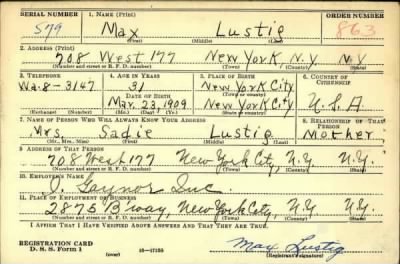 SERIAL NUMBER 1. NAME (Print) ORDER NUMBER
579 Max Lustig 863
(First) (Middle) (Last)
2. ADDRESS (Print)
708 West 177 New York, N.Y. N.Y.
(Number and street or R. F. D. number) (Town) (County) (State)
3. TELEPHONE 4. AGE IN YEARS 5. PLACE OF BIRTH 6. COUNTRY OF CITIZENSHIP
Wa-8-3147 31 New York City
DATE OF BIRTH (Town or county)
Mar. 23, 1909 New York U.S.A
(Exchange) (Number) (Mo.) (Day) (Yr.) (State or country)
7. NAME OF PERSON WHO WILL ALWAYS KNOW YOUR ADDRESS 8. RELATIONSHIP OF THAT PERSON
Mrs. Sadie Lustig Mother
(Mr., Mrs., Miss) (First) (Middle) (Last)
9. ADDRESS OF THAT PERSON
708 West 177 New York City, N.Y N.Y.
(Number and street or R. F. D. number) (Town) (County) (State)
10. EMPLOYER'S NAME
Gaynor Inc.
11. PLACE OF EMPLOYMENT OR BUSINESS
2875 B'way, New York City, N.Y N.Y.
(Number and street or R. F. D. number) (Town) (County) (State)
I AFFIRM THAT I HAVE VERIFIED ABOVE ANSWERS AND THAT THEY ARE TRUE.
REGISTRATION CARD
D. S. S. Form 1 (over) 16—17105 Max Lustig
(Registrant's signature)